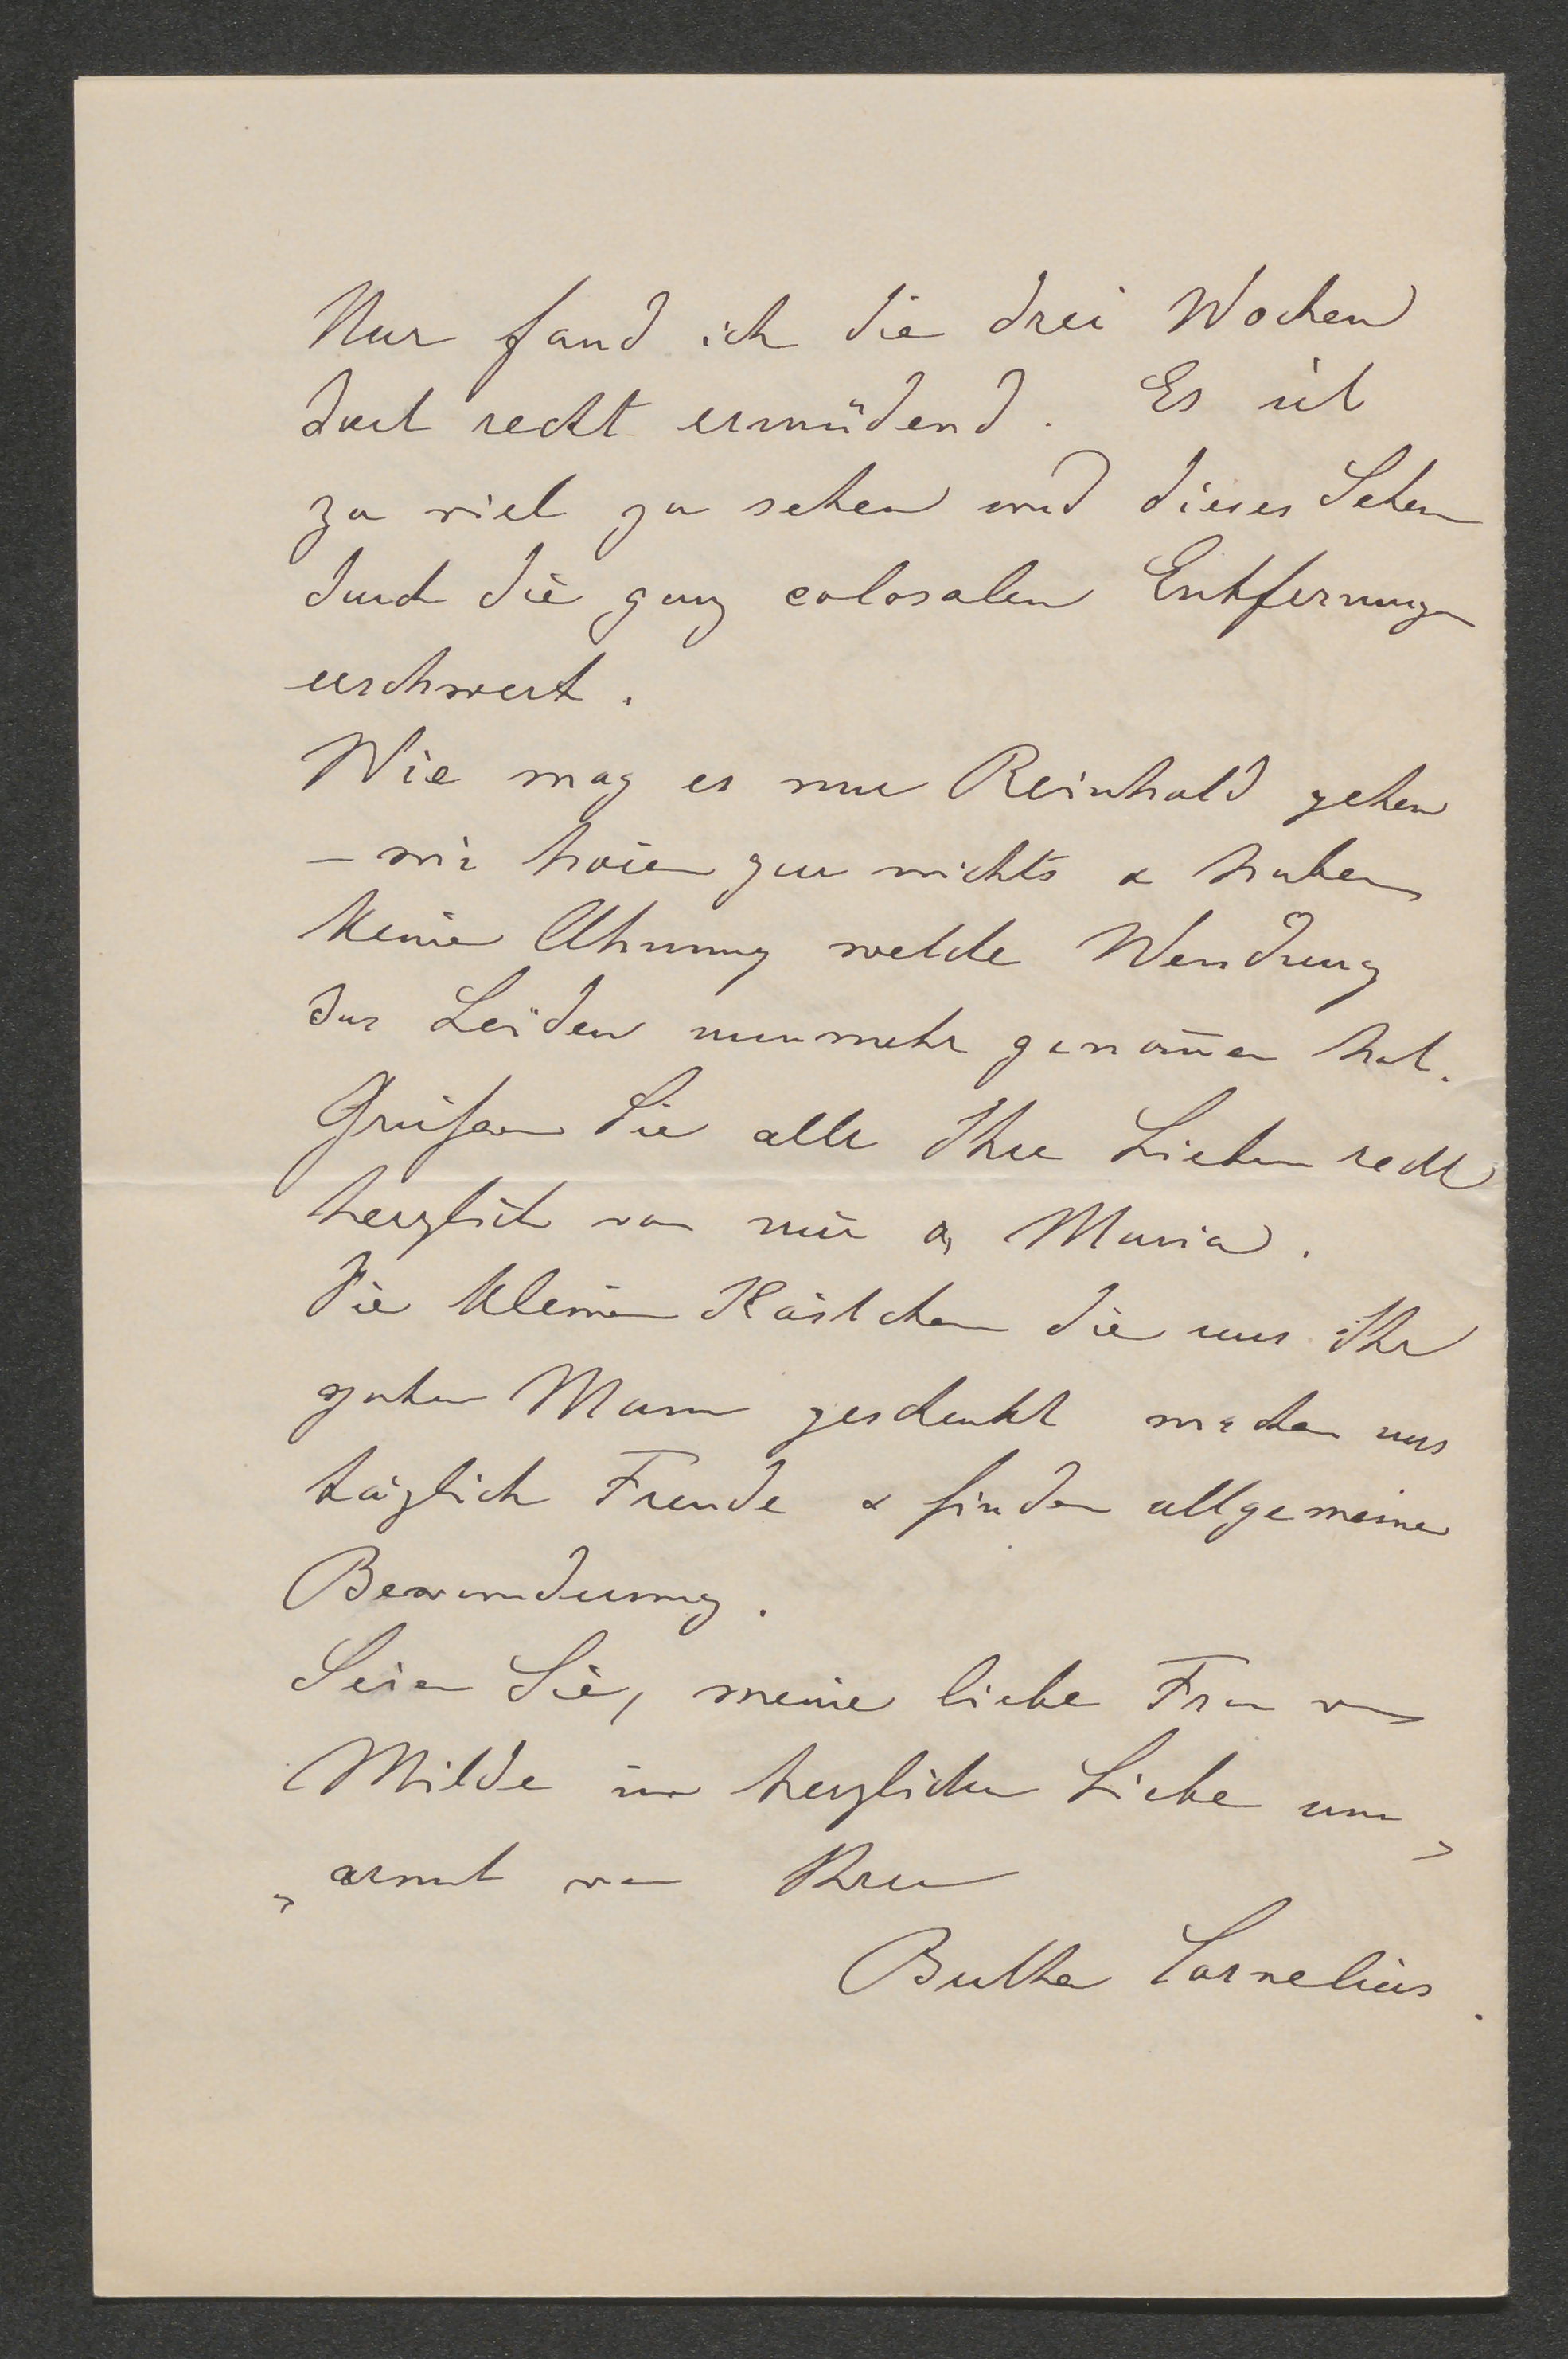 Nur fand ich die drei Wochen
dort recht ermüdend. Es ist
zu viel zu sehen und dieses Sehen
durch die ganz colosalen Entfernungen
erschwert.
Wie mag es nur Reinhold gehen
– wir hören gar nichts & haben
keine Ahnung welche Wendung
das Leiden nunmehr genom̄en hat.
Grüßen Sie alle Ihre Lieben recht
herzlich von mir & Maria.
Die kleinen Kästchen die uns Ihr
guter Mann geschenkt machen uns
täglich Freude & finden allgemeine
Bewunderung.
Seien Sie, meine liebe Frau von
Milde in herzlicher Liebe um„
„armt von Ihrer
Bertha Cornelius.